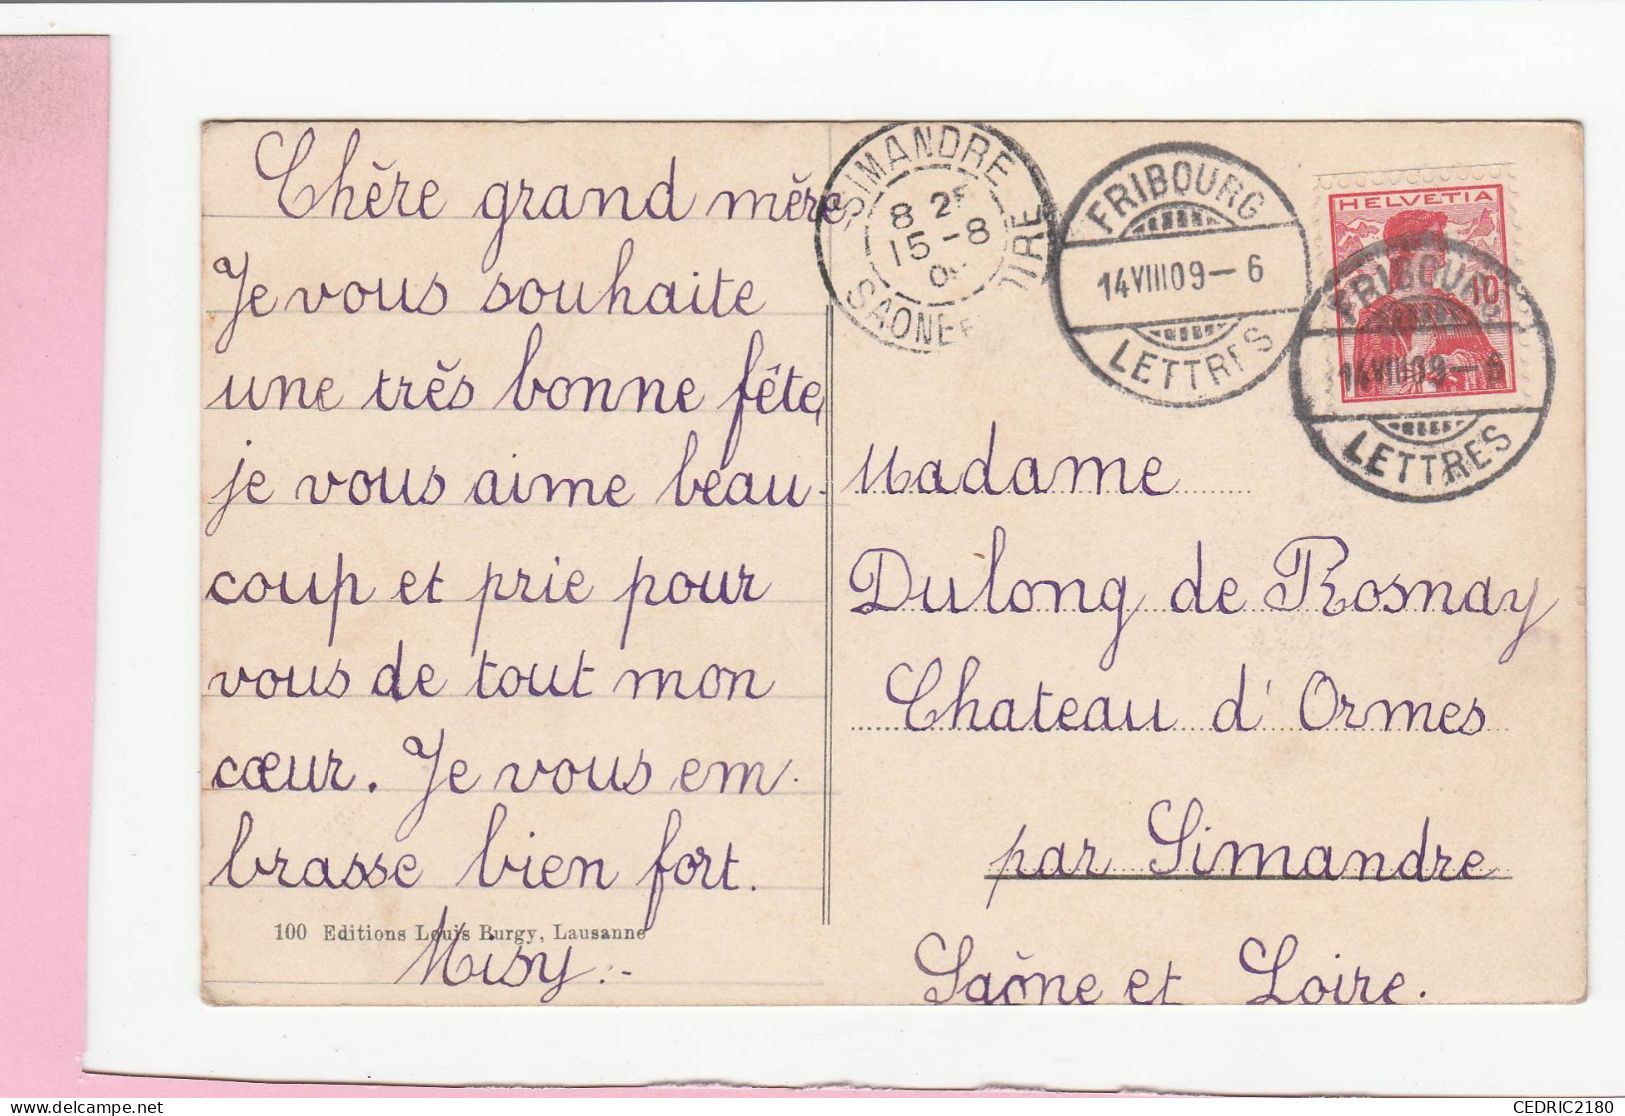 Chère grand mère
Je vous souhaite
une très bonne fête,
je vous aime beau-
coup et prie pour
vous de tout mon
cœur. Je vous em-
brasse bien fort.
100 Editions Louis Burgy, Lausanne
Misy.
SIMANDRE
15-8
FRIBOURG
14 VIII 09-6
LETTRES
HELVETIA
10
FRIBOURG
14 VIII 09-6
LETTRES
Madame
Dulong de Rosnay
Chateau d'Ormes
par Simandre
Saône et Loire.
CEDRIC2180